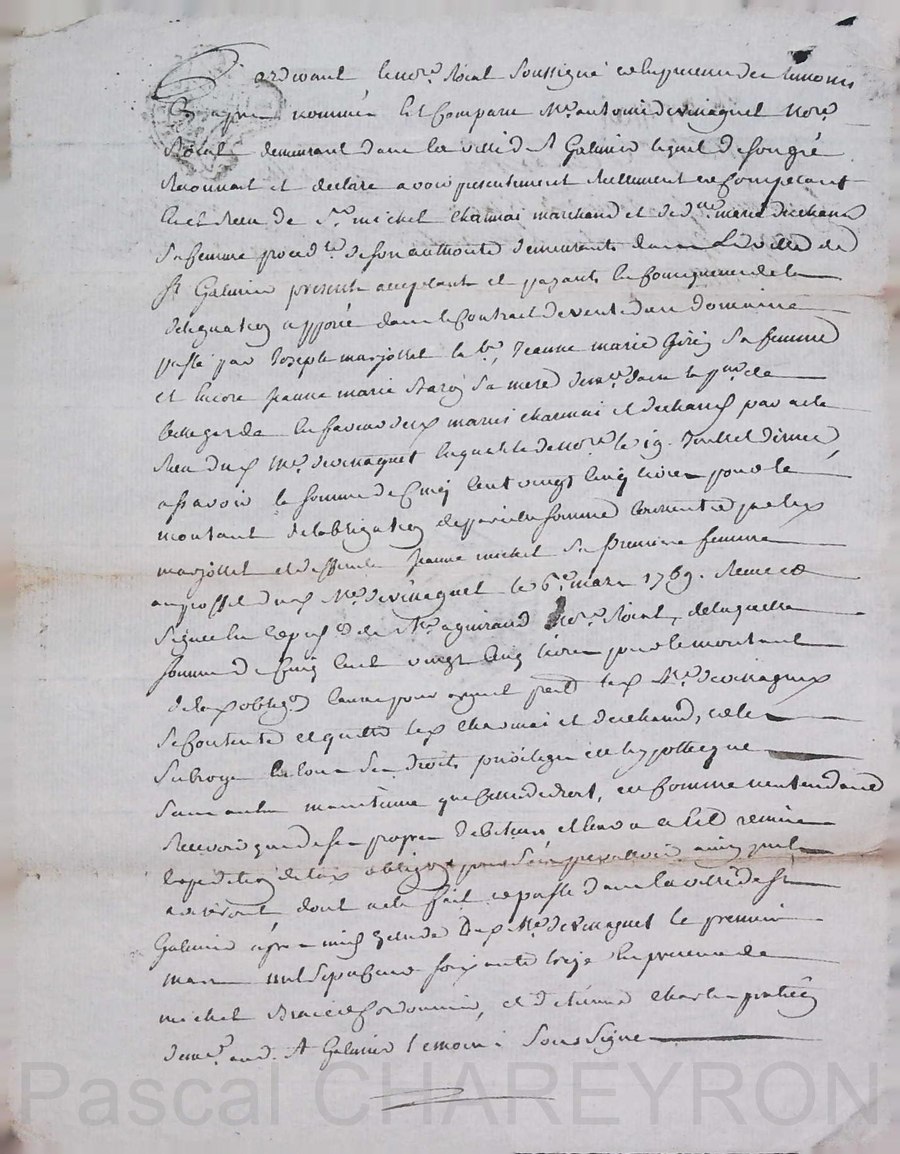 Pardevant le no.re Roial soussigné et en presence des temoins
apres nommés est comparu M.e antoine devinaguet No.re
Roial demeurant dans la ville de S.t Galmier lequel de son gré
Reconnait et declare avoir presentement Reellement et Comptant
eu et Receu de S.r michel charmai marchand et de d.lle marie dechand
sa femme proced.te de son authorité demeurants dans la ville de
S.t Galmier presents acceptants et payants en consequence de la
delegation apposée dans le contrat de vente d'un domaine
passé par Joseph marjollet le b. Jeanne marie Giry sa femme
et encore Jeanne marie sa mere dem.ts dans la p.sse de
bellegarde en faveur desd mariés charmai et dechand par acte
Receu dud M.e devinaguet en qualité de No.re le 19. Juillet dernier
assavoir la somme de Cinq cent vingt cinq livres pour le
montant de l'obligation de pareille somme consentie par led
marjollet et deffunte Jeanne michel sa premiere femme
au proffit dud M.e devinaguet le 6.e mars 1769. Receue et
signée en expéd.on de M.e aguiraud No.re Roial, de laquelle
somme de Cinq cent vingt cinq livres pour le montant
de lad oblig.on comme pour argent led M.e devinaguet
se contente et quitte led charmai et dechand, et les
subroge en tous ses droits privileges et hypotheques
sans autre maintenue que de droit, et comme n'entendant
Recevoir que de ses propres debiteurs et leur a led remis
expedition de lad obligation pour s'en prevaloir ainsi qu'ils
aviseront dont acte fait et passé dans la ville de S.t
Galmier apres midi etude dud M.e devinaguet le premier
mars mil sept cent soixante treize en presence de
michel cordonnier, et d'etienne charles praticien
dem.ts aud. S.t Galmier temoins soussignés
Pascal CHAREYRON